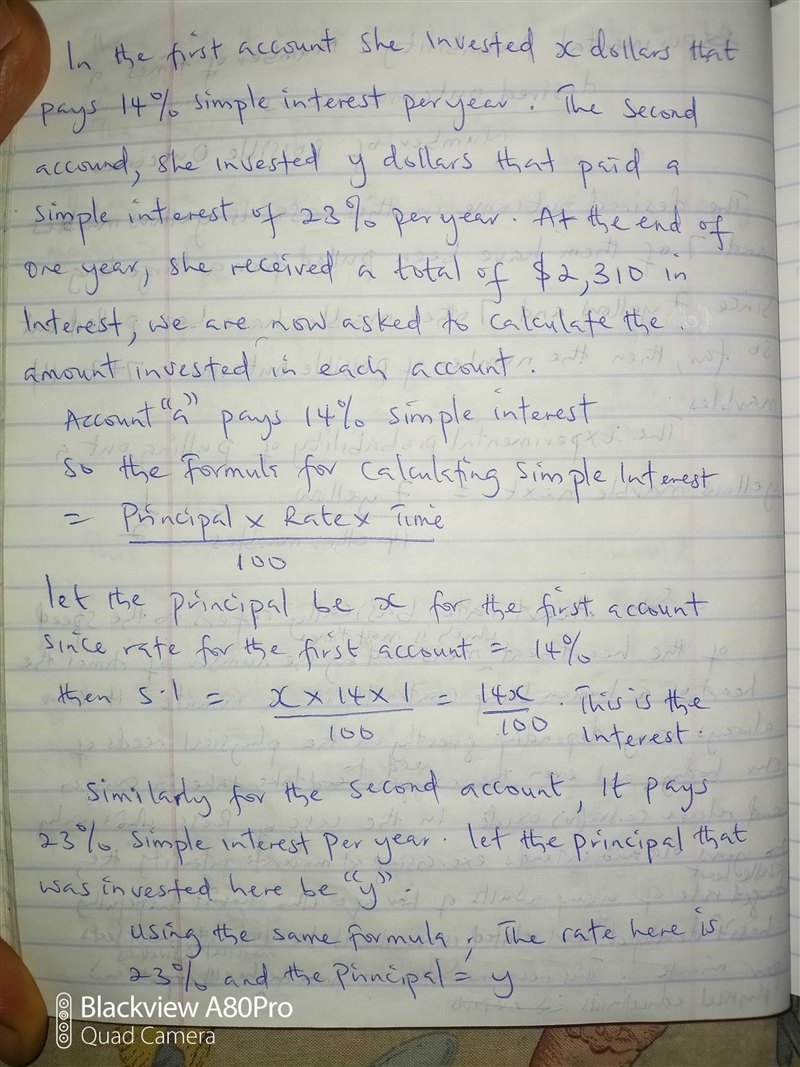 In the first account she invested x dollars that
pays 14% simple interest per year. The second
accound, she invested y dollars that paid a
simple interest of 23% per year. At the end of
one year, she received a total of $2,310 in
Interest, we are now asked to calculate the.
amount invested in each account.
Account "a" pays 14% simple interest
So the formula for calculating simple Interest
= Principal x Rate x Time
100
let the principal be x for the first account
since rate for the first account = 14%
then S.I = x × 14 × 1 = 14x . This is the
100 100 Interest.
Similarly for the second account, It pays
23% simple interest per year. let the principal that
was invested here be "y".
Using the same formula, The rate here is
23% and the principal = y
Blackview A80Pro
Quad Camera